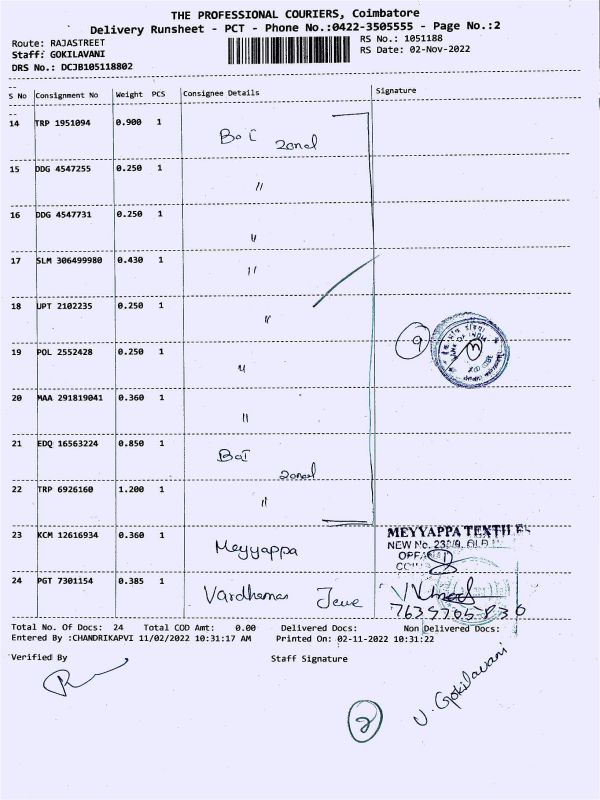 THE PROFESSIONAL COURIERS, Coimbatore
Delivery Runsheet - PCT - Phone No.:0422-3505555 - Page No.:2
Route: RAJASTREET
RS No.: 1051188
Staff: GOKILAVANI
RS Date: 02-Nov-2022
DRS No.: DCJB105118802
S No Consignment No Weight PCS Consignee Details Signature
14 TRP 1951094 0.900 1 BOI zonal
15 DDG 4547255 0.250 1 "
16 DDG 4547731 0.250 1 "
17 SLM 306499980 0.430 1 "
18 UPT 2102235 0.250 1 "
19 POL 2552428 0.250 1 "
9
20 MAA 291819041 0.360 1 "
21 EDQ 16563224 0.850 1 BOI zonal
22 TRP 6926160 1.200 1 "
23 KCM 12616934 0.360 1 Meyyappa
MEYYAPPA TEXTILES
24 PGT 7301154 0.385 1 Vardhaman
Total No. Of Docs: 24 Total COD Amt: 0.00 Delivered Docs: Non Delivered Docs:
Entered By :CHANDRIKAPVI 11/02/2022 10:31:17 AM Printed On: 02-11-2022 10:31:22
Verified By Staff Signature
V. Gokilavani
2